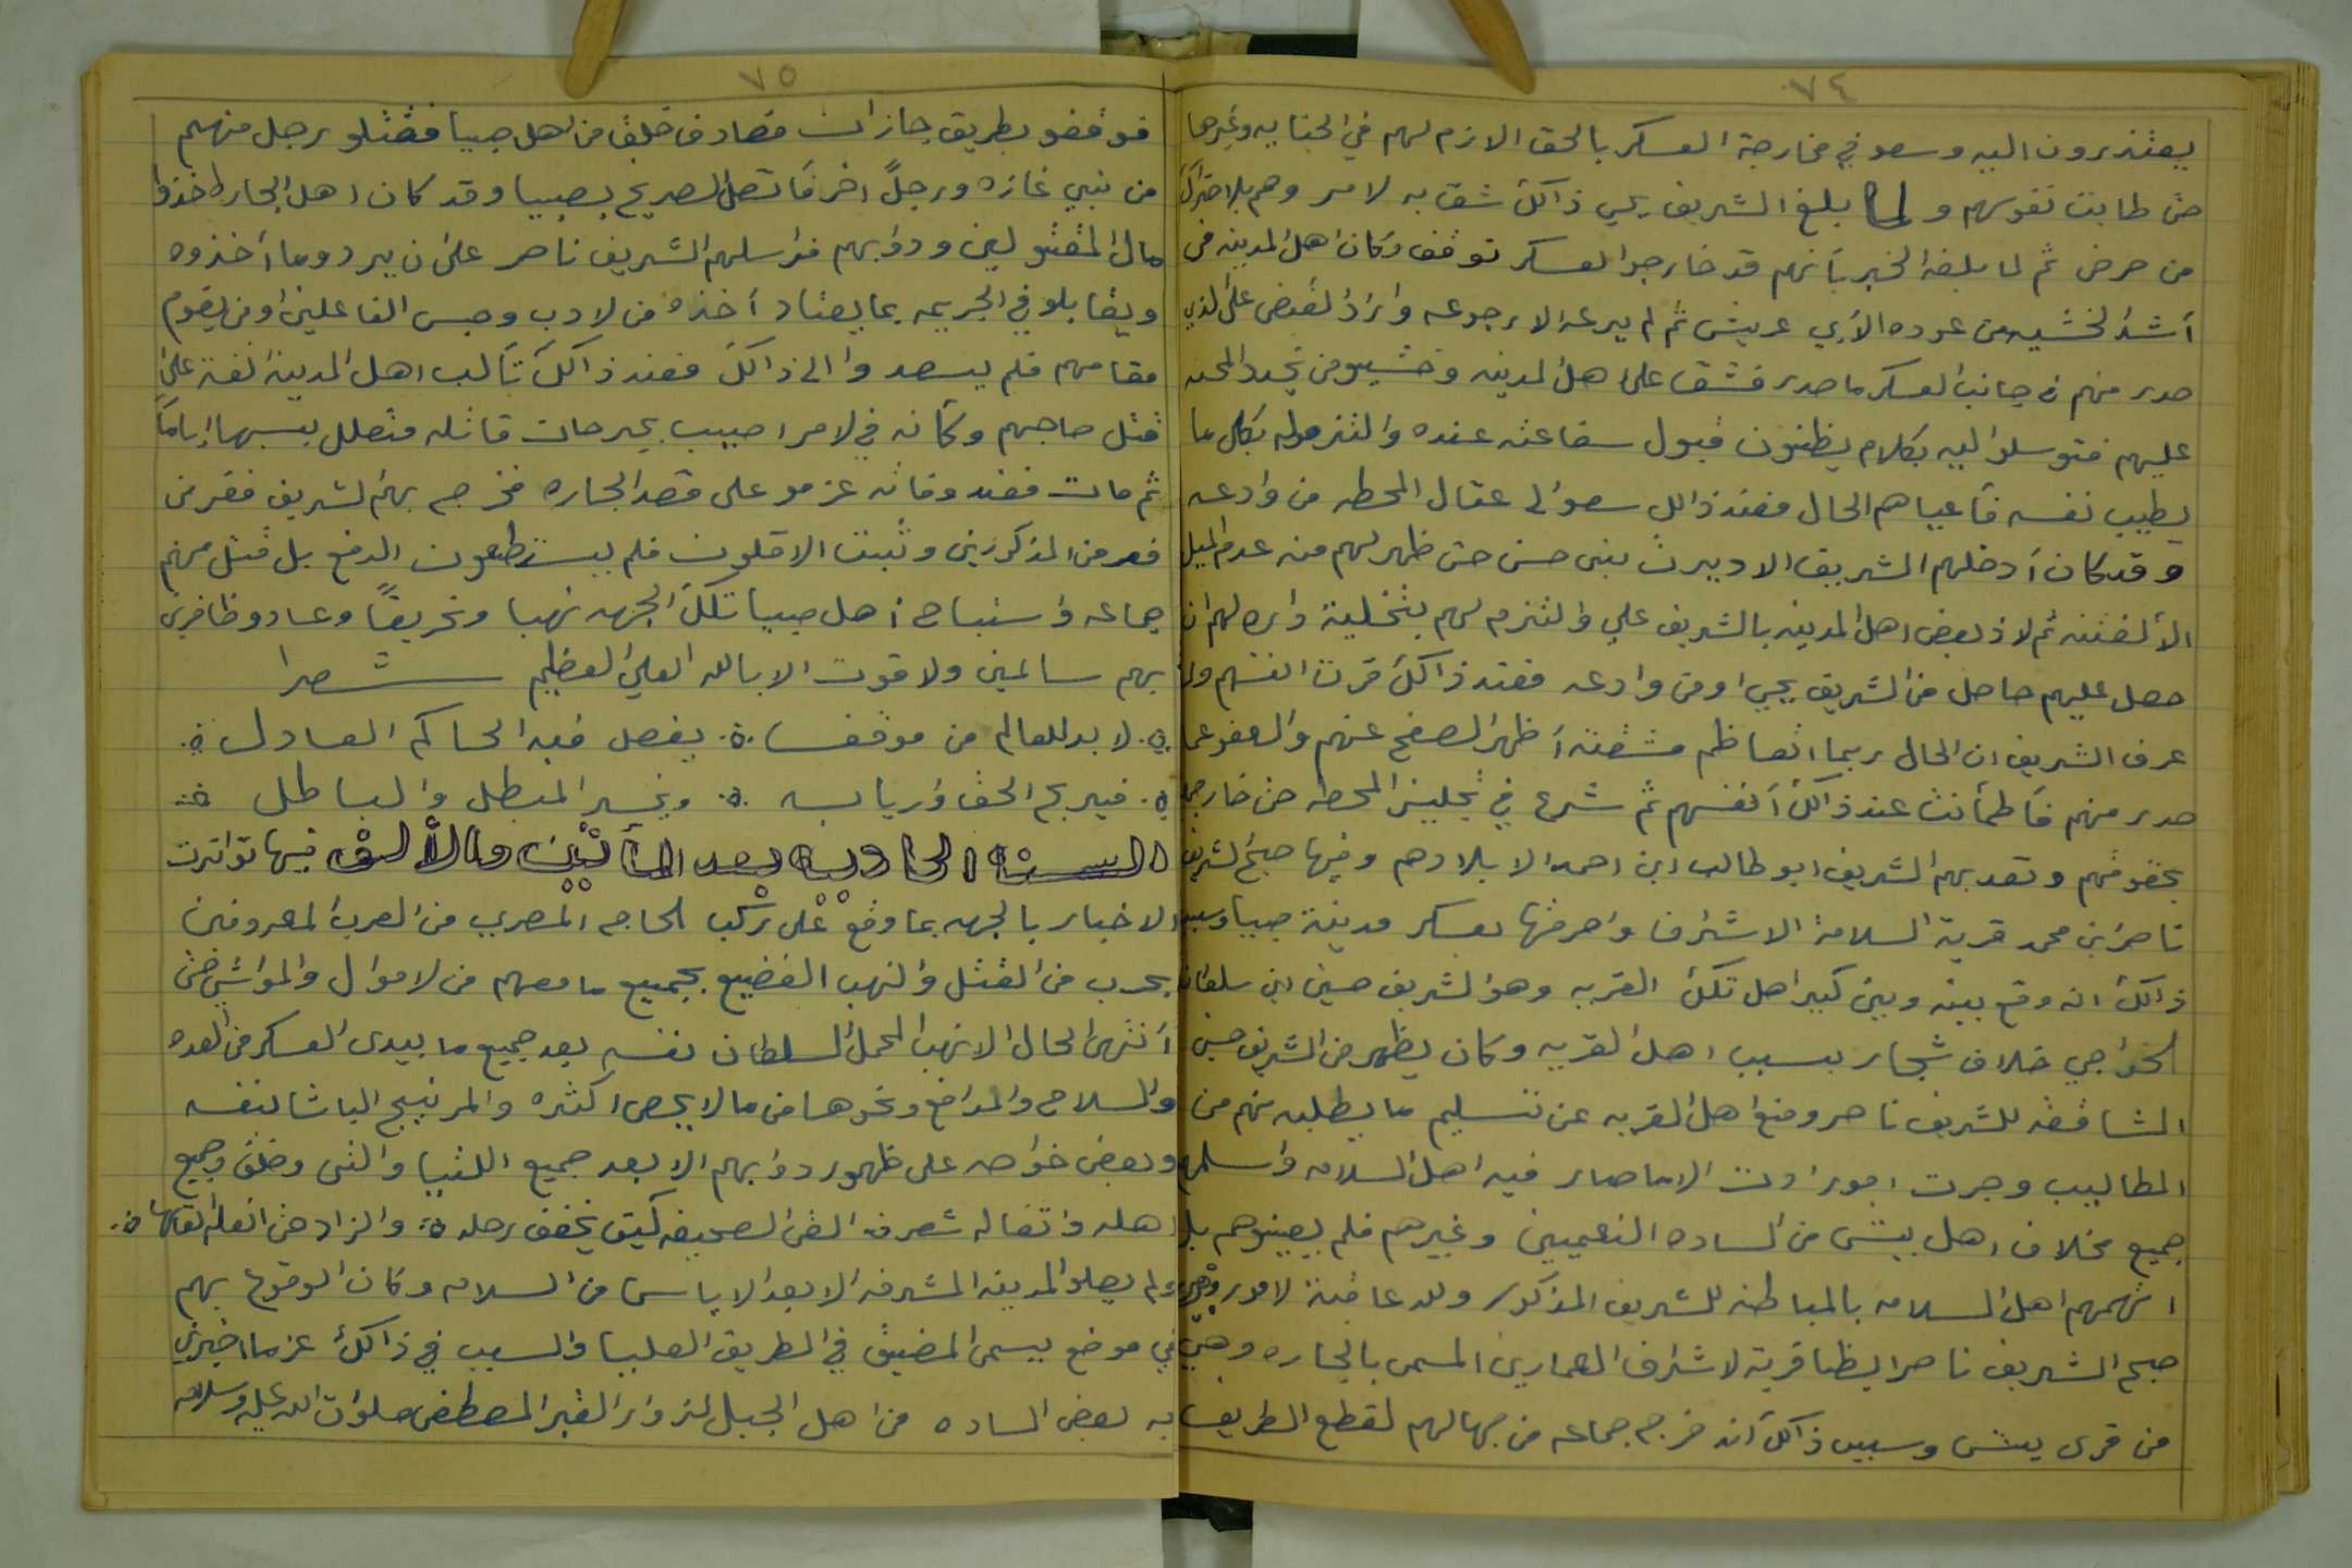 ٧٤
يعتذرون اليه وسعو في مخارجة العسكر بالحق الازم لهم في الجنايه وغيرها
حتى طابت نفوسهم ولما بلغ الشريف يحي ذالك شق به لامر وهم بلاحتراك
من حرض ثم لما بلغه الخبر بأنهم قد خارجوا لعسكر توقف وكان اهل المدينه في
أشد الخشيه من عوده الأبي عريش ثم لم يرعه الا رجوعه واراد القبض على لذي
صدر منهم في جانب العسكر ما صدر فشق على اهل لمدينه وخشيو من تجدد المحنه
عليهم فتوسلو اليه بكلام يظنون قبول سفاعته عنده والتزموله بكل ما
يطيب نفسه فأعياهم الحال فعند ذالك سعوا لى عقال المحطه من وادعه
وقد كان أدخلهم الشريف الا ديرت بني حسن حتى ظهر لهم منه عدم الميل
الألفتنه ثم لاذ بعض اهل المدينه بالشريف علي والتزم لهم بتخلية دايره لهم ان
حصل عليهم حاصل من الشريف يحيي او من وادعه فعند ذالك قرت انفسهم ولما
عرف الشريف ان الحال ربما اتعاظم مشقته أظهر الصفح عنهم والعفو عما
صدر منهم فأطمأنت عند ذالك أنفسهم ثم شرع في تجليز المحطه حتى خارجهم
بحقوقهم وتعد بهم الشريف ابو طالب ابن احمد الا بلادهم وفيها صبح الشريف
ناصر ابن محمد قرية السلامة الاشراف واحرقها بعسكر مدينة صبيا وسبب
ذالك انه وقع بينه وبين كبير اهل تلك القريه وهو الشريف حسين ابن سلطان
الخواجي خلاف شجار بسبب اهل القريه وكان يظهر من الشريف حسين
المشاققه للشريف ناصر ومنع اهل القريه عن تسليم ما يطلبه منهم من
المطاليب وجرت امور ادت الا ما صار فيه اهل السلامه واسلمهم
جميع مخلاف اهل بيش من الساده النعميين وغيرهم فلم يعينوهم بل
اتهمهم اهل السلامه بالمباطنه للشريف المذكور ولله عاقبة لامور وفيها
صبح الشريف ناصر ايظا قرية لاشراف العمارين المسمى بالجاره وهي
من قرى بيش وسبب ذالك أنه خرج جماعه من جهالهم لقطع الطريق
٧٥
فوقفو بطريق جازان فصادف خلق من اهل صبيا فقتلو رجل منهم
من بني غازه ورجلً اخر فأتصل الصريخ بصبيا وقد كان اهل الجاره اخذوا
مال المقتولين ودوابهم فراسلهم الشريف ناصر على ان يردو ما أخذوه
ويقابلو في الجريمه بما يعتاد أخذه من لادب وحبس الفاعلين او من يقوم
مقامهم فلم يسعدوا الى ذالك فعند ذالك تألب اهل المدينة لفة على
قتل صاحبهم وكأنه في لامر اصيب بجرحات قاتله فتعلل بسببها اياماً
ثم مات فعند وفاته عزمو على قصد الجاره فخرج بهم الشريف ففر من
فر من المذكورين وثبت الاقلون فلم يستطعون الدفع بل قتل منهم
جماعه واستباح أهل صبيا تلك الجهه نهبا وتحريقاً وعادو ظافرين
بهم سالمين ولا قوت الا بالله العلي العظيم شعرا
لا بد للعالم من موقف يفصل فيه الحاكم العادل
فيربح الحق واربابه ويخسر المبطل والباطل
السنة الحاديه بعد المأتين والألف فيها تواترت
الاخبار بالجهه بما وقع على ركب الحاج المصري من العرب المعروفين
بحرب من القتل والنهب الفضيع بجميع ما معهم من لاموال والمواشي حتى
أنتهى الحال الا نهب المحمل السلطان نفسه بعد جميع ما بيدى العسكر من العده
والسلاح والمدافع ونحوها من ما لا يحصى اكثره والمر نيج الباشا بنفسه
وبعض خواصه على ظهور دوابهم الا بعد جميع اللتيا والتى وخلف جميع
اهله واتقاله شعر القى الصحيفه كيي يخفف رحله والزاد حتى انعله القاها
ولم يصلو المدينه المشرفه الا بعد الاياس من السلامه وكان الوقوع بهم
في موضع يسمى المضيق في الطريق العليا والسبب في ذالك عزما اخبرني
به بعض الساده من اهل الجبل لزوار القبر المصطفى صلوات الله عليه وسلامه